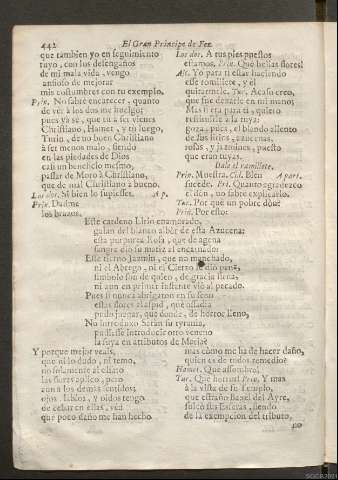 442 El Gran Principe de Fez.
que tambien yo en seguimiento
tuyo, con los desengaños
de mi mala vida, vengo
ansioso de mejorar
mis costumbres con tu exemplo.
Prin. No sabrè encarecer, quanto
de ver à los dos me huelgo;
pues ya sè, que tu à ser vienes
Christiano, Hamet, y tu luego,
Turin, de no buen Christiano
à ser menos malo, siendo
en las piedades de Dios
casi un beneficio mesmo,
passar de Moro à Christiano,
que de mal Christiano à bueno.
Los dos. Si bien lo supiesses. Ap.
Prin. Dadme
los brazos.
Los dos. A tus pies puestos
estamos. Prin. Què bellas flores!
Alc. Yo para ti estaba haciendo
esse ramillete, y el
quitarmele. Tur. Acaso creo,
que fue dexarle en mi mano;
Mas si era para ti, quiero
restituirle à la tuya:
goza, pues, el blando aliento
de sus lirios, azucenas,
rosas, y jazmines, puesto
que eran tuyas.
Dale el ramillete.
Prin. Muestra. Cid. Bien A part.
sucede. Pri. Quanto agradezco
el dòn, no sabre explicarlo.
Tur. Por què un pobre dòn?
Prin. Por esto:
Este cardeno Lirio enamorado,
galan del blanco albòr de esta Azucena:
esta purpurea Rosa, que de agena
sangre diò su matiz al encarnado:
Este tierno Jazmin, que no manchado,
ni el Abrego, ni el Cierzo le diò pena,
simbolo son de quien, de gracia llena,
ni aun en primer instante viò al pecado.
Pues si nunca abrigaron en su seno
estas flores al aspid, què osadia
pudo juzgar, que donde, de horror lleno,
No introduxo Satàn su tyrania,
pudiesse introducir otro veneno
la suya en atributos de Maria?
Y porque mejor veais,
que ni lo dudo, ni temo,
no solamente al olfato
las flores aplico, pero
aun à los demàs sentidos,
ojos, labios, y oidos tengo
de cebar en ellas, vèd
què poco daño me han hecho
mas còmo me ha de hacer daño,
quien es de todos remedio?
Hamet. Què assombro!
Tur. Què horror! Prin. Y mas
à la vista de su Templo,
que estraño Baxel del Ayre,
sulcò sus Esferas, siendo
de la exempcion del tributo,